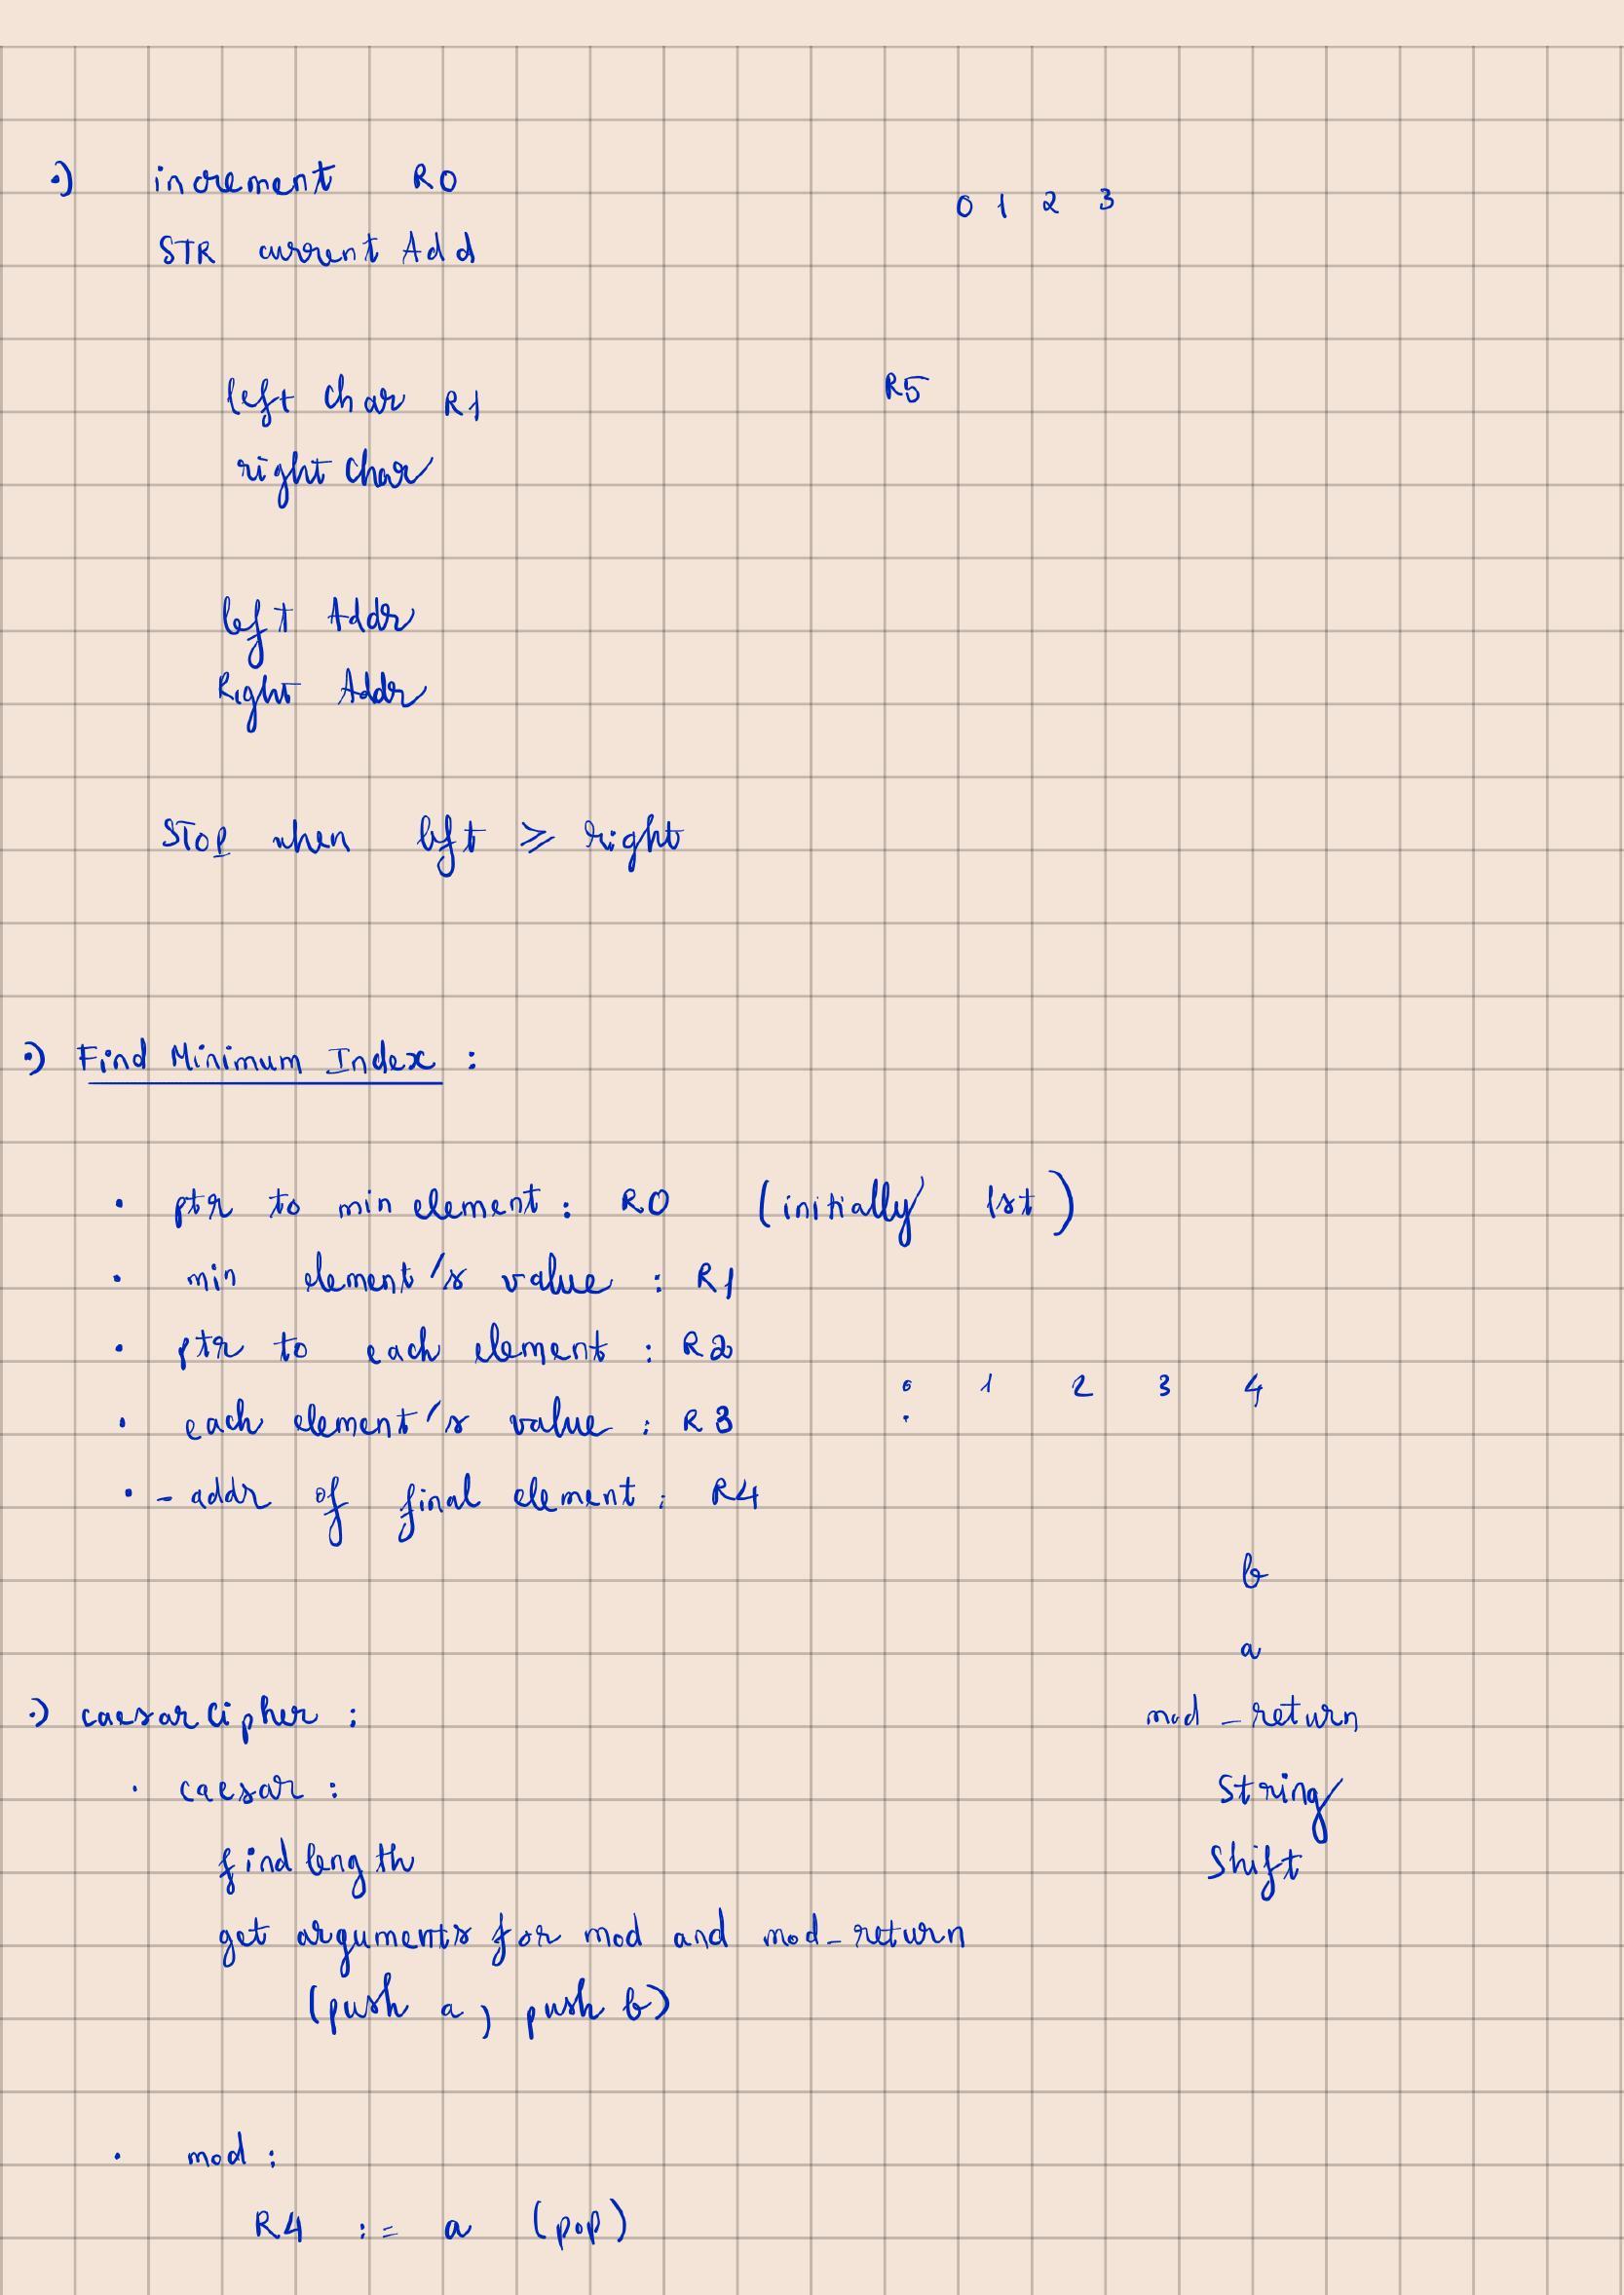 ·) increment R0
0 1 2 3
STR current Add
left char R1
R5
right char
left Addr
Right Addr
STOP when left ≥ right
·) Find Minimum Index :
· ptr to min element : R0 (initially 1st)
· min element's value : R1
· ptr to each element : R2
0 1 2 3 4
· each element's value : R3
· - addr of final element : R4
b
a
·) caesarCipher :
mod _ return
· caesar :
String
find length
Shift
get arguments for mod and mod_return
(push a, push b)
· mod :
R4 := a (pop)